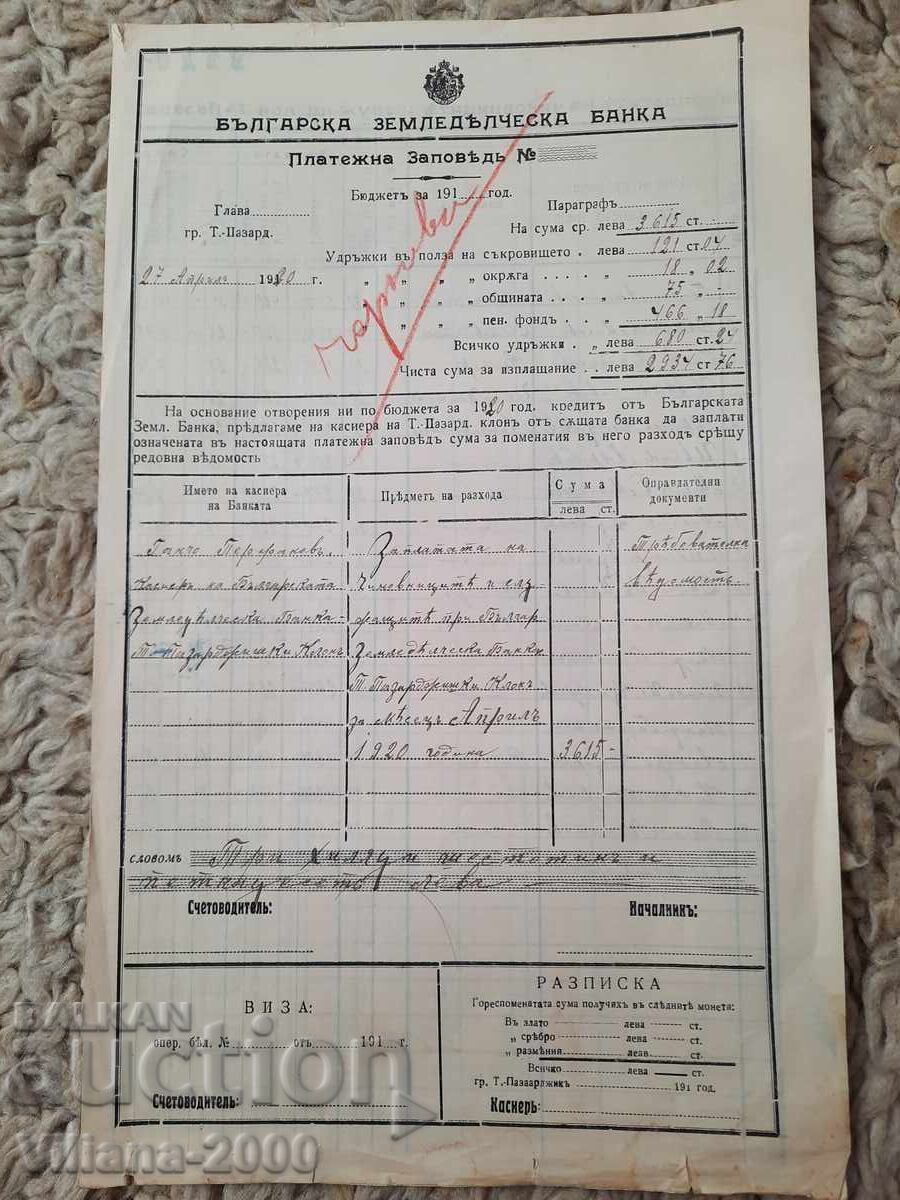 БЪЛГАРСКА ЗЕМЛЕДѢЛЧЕСКА БАНКА
Платежна Заповѣдь №
Бюджетъ за 191 год.
Глава
Параграфъ
гр. Т.-Пазард.
На сума ср. лева 3615 ст.
Удръжки въ полза на съкровището . лева 121 ст. 04
27 Априлъ 1920 г. „ „ „ „ окрѫга . . . . „ 18 „ 02
„ „ „ „ общината . . . . „ 75 - -
„ „ „ „ пен. фондъ . . „ 466 „ 18
Всичко удръжки . „ лева 680 ст. 24
Чиста сума за изплащание . . лева 2934 ст. 76
чернова
На основание отворения ни по бюджета за 1920 год. кредитъ отъ Българската
Земл. Банка, предлагаме на касиера на Т.-Пазард. клонъ отъ сѫщата банка да заплати
означената въ настоящата платежна заповѣдъ сума за поменатия въ него разходъ срѣщу
редовна вѣдомость
Името на касиера на Банката
Прѣдметъ на разхода
Сума
лева ст.
Оправдателни документи
Ганчо
Заплатата на
Трѣбователна
Касиеръ на Българската
чиновницитѣ и слу
вѣдомость
Земледѣлческа Банка
жащитѣ при Българ
Т. Пазарджишки Клонъ
Земледѣлческа Банка
Т. Пазарджишки Клонъ
за мѣсецъ Априлъ
1920 година 3615 -
словомъ Три хиляди шестотинъ и
петнадесеть лева
Счетоводитель:
Началникъ:
ВИЗА:
опер. бѣл. № отъ 191 г.
Счетоводитель:
РАЗПИСКА
Гореспоменатата сума получихъ въ слѣднитѣ монети:
Въ злато лева ст.
„ срѣбро лева ст.
„ размѣния лева ст.
Всичко лева ст.
гр. Т.-Пазарджикъ 191 год.
Касиеръ:
BALKAN
auction
Viliana-2000